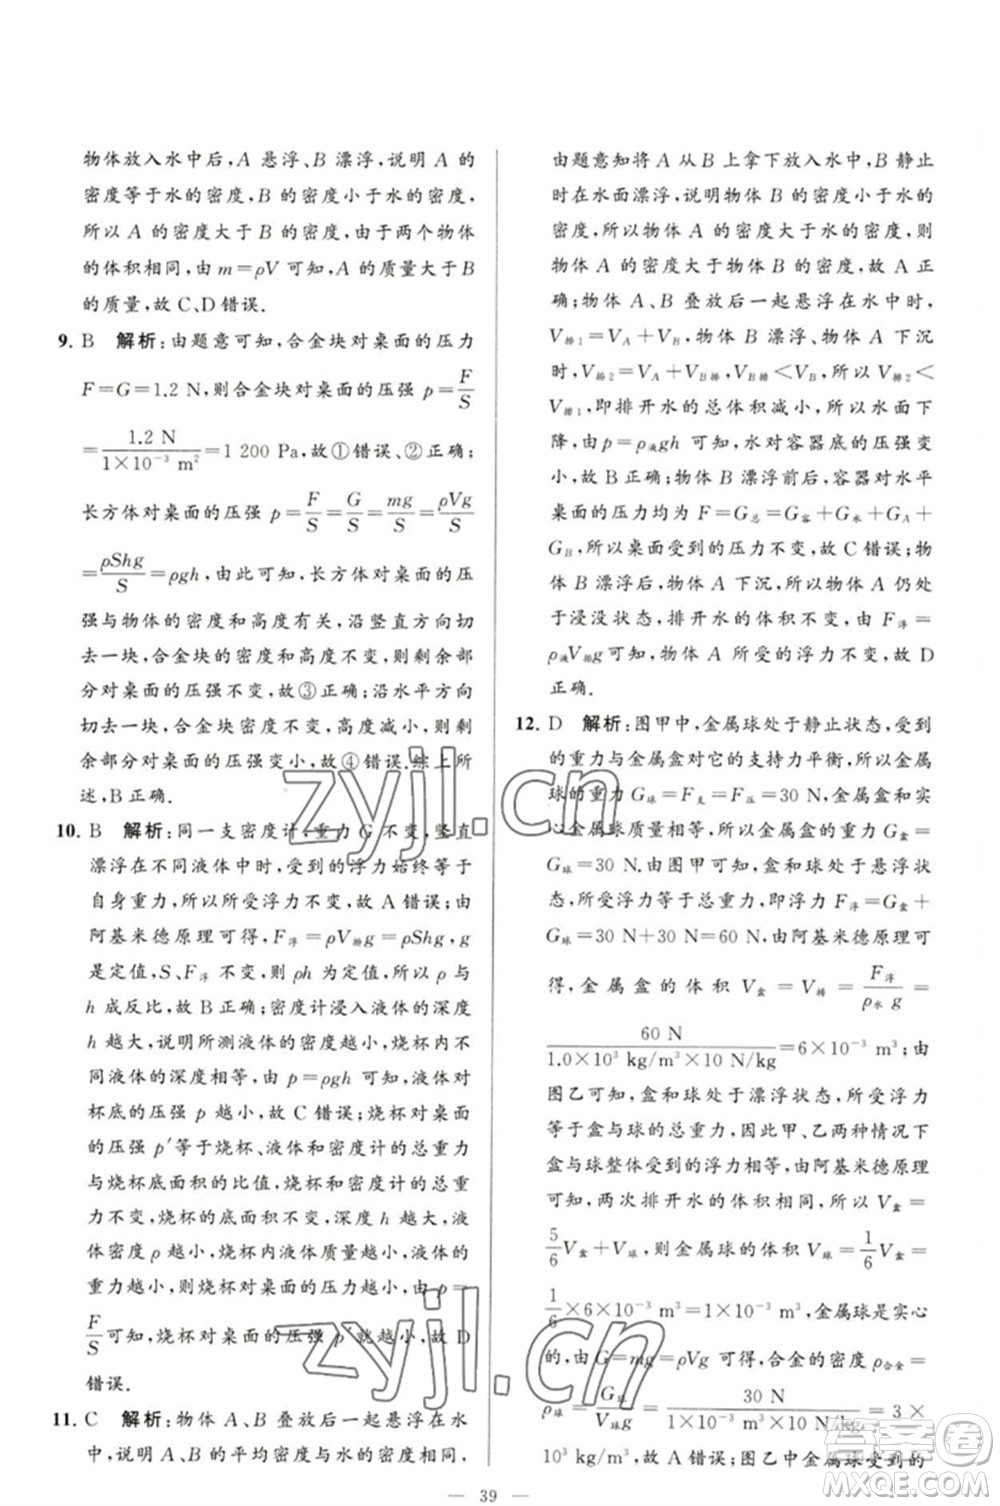 物体放入水中后,A 悬浮、B 漂浮,说明 A 的
密度等于水的密度,B 的密度小于水的密度,
所以 A 的密度大于 B 的密度,由于两个物体
的体积相同,由 m=ρV 可知,A 的质量大于 B
的质量,故 C、D 错误.
9. B 解析:由题意可知,合金块对桌面的压力
F=G=1.2 N,则合金块对桌面的压强 p=F/S
=1.2 N/(1×10⁻³ m²)=1 200 Pa,故①错误、②正确;
长方体对桌面的压强 p=F/S=G/S=mg/S=ρVg/S
=ρShg/S=ρgh,由此可知,长方体对桌面的压
强与物体的密度和高度有关,沿竖直方向切
去一块,合金块的密度和高度不变,则剩余部
分对桌面的压强不变,故③正确;沿水平方向
切去一块,合金块密度不变,高度减小,则剩
余部分对桌面的压强变小,故④错误.综上所
述,B 正确.
10. B 解析:同一支密度计,重力 G 不变,竖直
漂浮在不同液体中时,受到的浮力始终等于
自身重力,所以所受浮力不变,故 A 错误;由
阿基米德原理可得,F浮=ρV排g=ρShg,g
是定值,S、F浮 不变,ρh 为定值,所以 ρ 与
h 成反比,故 B 正确;密度计浸入液体的深度
h 越大,说明所测液体的密度越小,烧杯内不
同液体的深度相等,由 p=ρgh 可知,液体对
杯底的压强 p 越小,故 C 错误;烧杯对桌面
的压强 p′等于烧杯、液体和密度计的总重力
与烧杯底面积的比值,烧杯和密度计的总重
力不变,烧杯的底面积不变,深度 h 越大,液
体密度 ρ 越小,烧杯内液体质量越小,液体
重力越小,则烧杯对桌面的压力越小,由 p=
F/S可知,烧杯对桌面的压强 p′就越小,故 D
错误.
11. C 解析:物体 A、B 叠放后一起悬浮在水
中,说明 A、B 的平均密度与水的密度相同,
由题意知将 A 从 B 上拿下放入水中,B 静止
时在水面漂浮,说明物体 B 的密度小于水的
密度,物体 A 的密度大于水的密度,则
物体 A 的密度大于物体 B 的密度,故 A 正
确;物体 A、B 叠放后一起悬浮在水中时,
V排1=VA+VB,物体 B 漂浮、物体 A 下沉
时,V排2=VA+VB排,VB排<VB,所以 V排2<
V排1,即排开水的总体积减小,所以水面下
降,由 p=ρ液gh 可知,水对容器底的压强变
小,故 B 正确;物体 B 漂浮前后,容器对水平
桌面的压力均为 F=G总=G容+G水+GA+
GB,所以桌面受到的压力不变,故 C 错误;因
物体 B 漂浮后,物体 A 下沉,所以物体 A 仍处
于浸没状态,排开水的体积不变,由 F浮=
ρ液V排g可知,物体 A 所受的浮力不变,故 D
正确.
12. D 解析:图甲中,金属球处于静止状态,受到
的重力与金属盒对它的支持力平衡,所以金属
球的重力 G球=F支=F压=30 N,金属盒和实
心金属球质量相等,所以金属盒的重力 G盒=
G球=30 N.由图甲可知,盒和球处于悬浮状
态,所受浮力等于总重力,则浮力 F浮=G盒+
G球=30 N+30 N=60 N,由阿基米德原理可
得,金属盒的体积 V盒=V排=F浮/(ρ水g)=
60 N/(1.0×10³ kg/m³×10 N/kg)=6×10⁻³ m³;由
图乙可知,盒和球处于漂浮状态,所受浮力
等于盒与球的总重力,因此甲、乙两种情况下
盒与球整体受到的浮力相等,由阿基米德原理
可知,两次排开水的体积相同,所以 V盒=
5/6V盒+V球,所以金属球的体积 V球=1/6V盒=
1/6×6×10⁻³ m³=1×10⁻³ m³,金属球是实心
的,由 G=mg=ρVg 可得,合金的密度 ρ合金=
ρ球=G球/(V球g)=30 N/(1×10⁻³ m³×10 N/kg)=3×
10³ kg/m³,故 A 错误;图乙中金属球受到的
— 39 —
zyjl.cn
zyjl.cn
答案圈
MXQE.COM